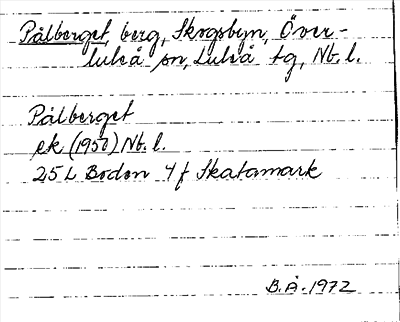 Pålberget, berg, Skogsbyn, Över-
luleå sn, Luleå tg, Nb. l.
Pålberget
ek (1950) Nb. l.
25 L Boden 4 f Skatamark
B. Å. 1972